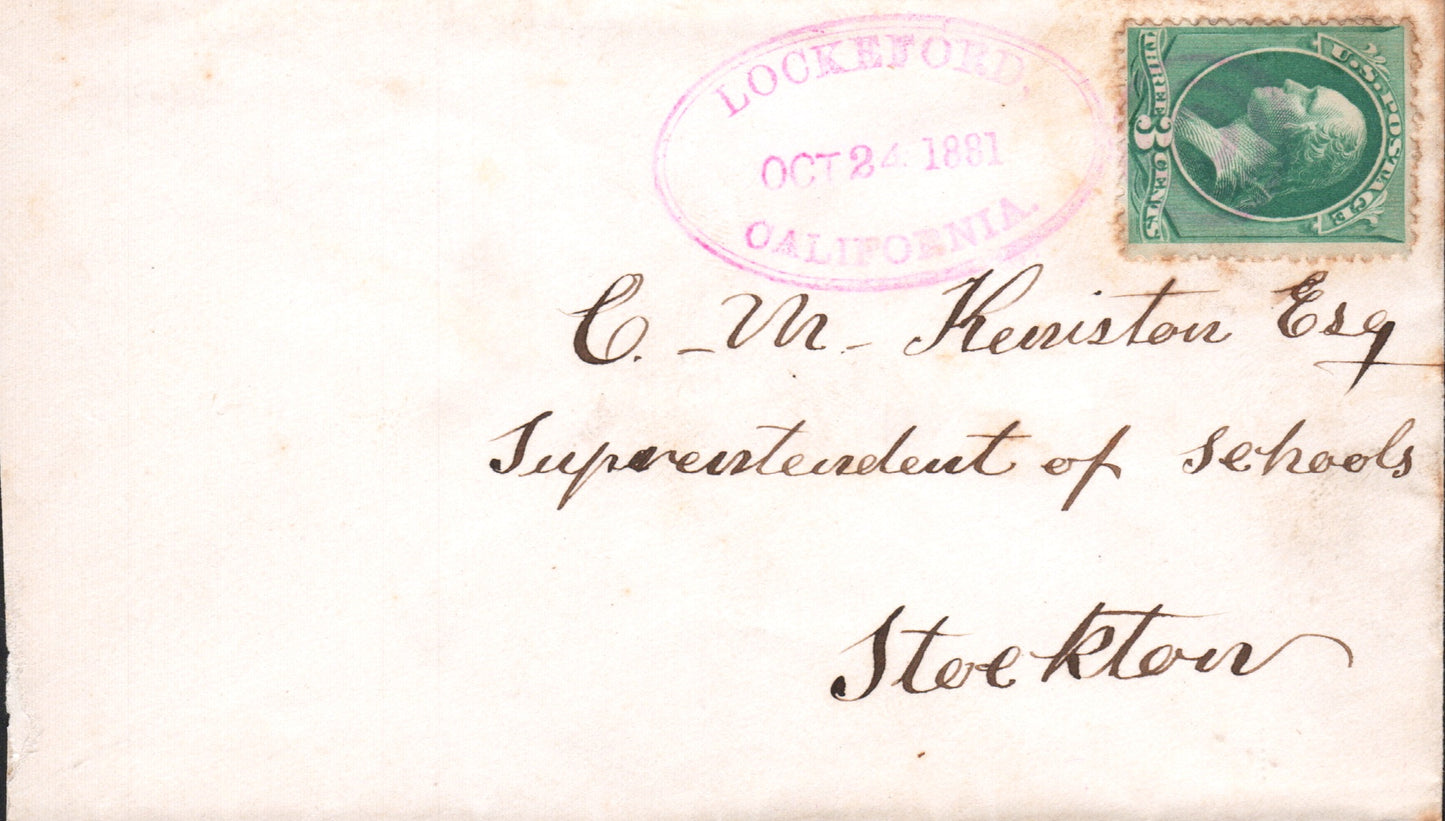 LOCKEFORD,
OCT 24 1881
CALIFORNIA.
U.S. POSTAGE
THREE 3 CENTS
C. - M - Keniston Esq
Suprentendent of Schools
Stockton